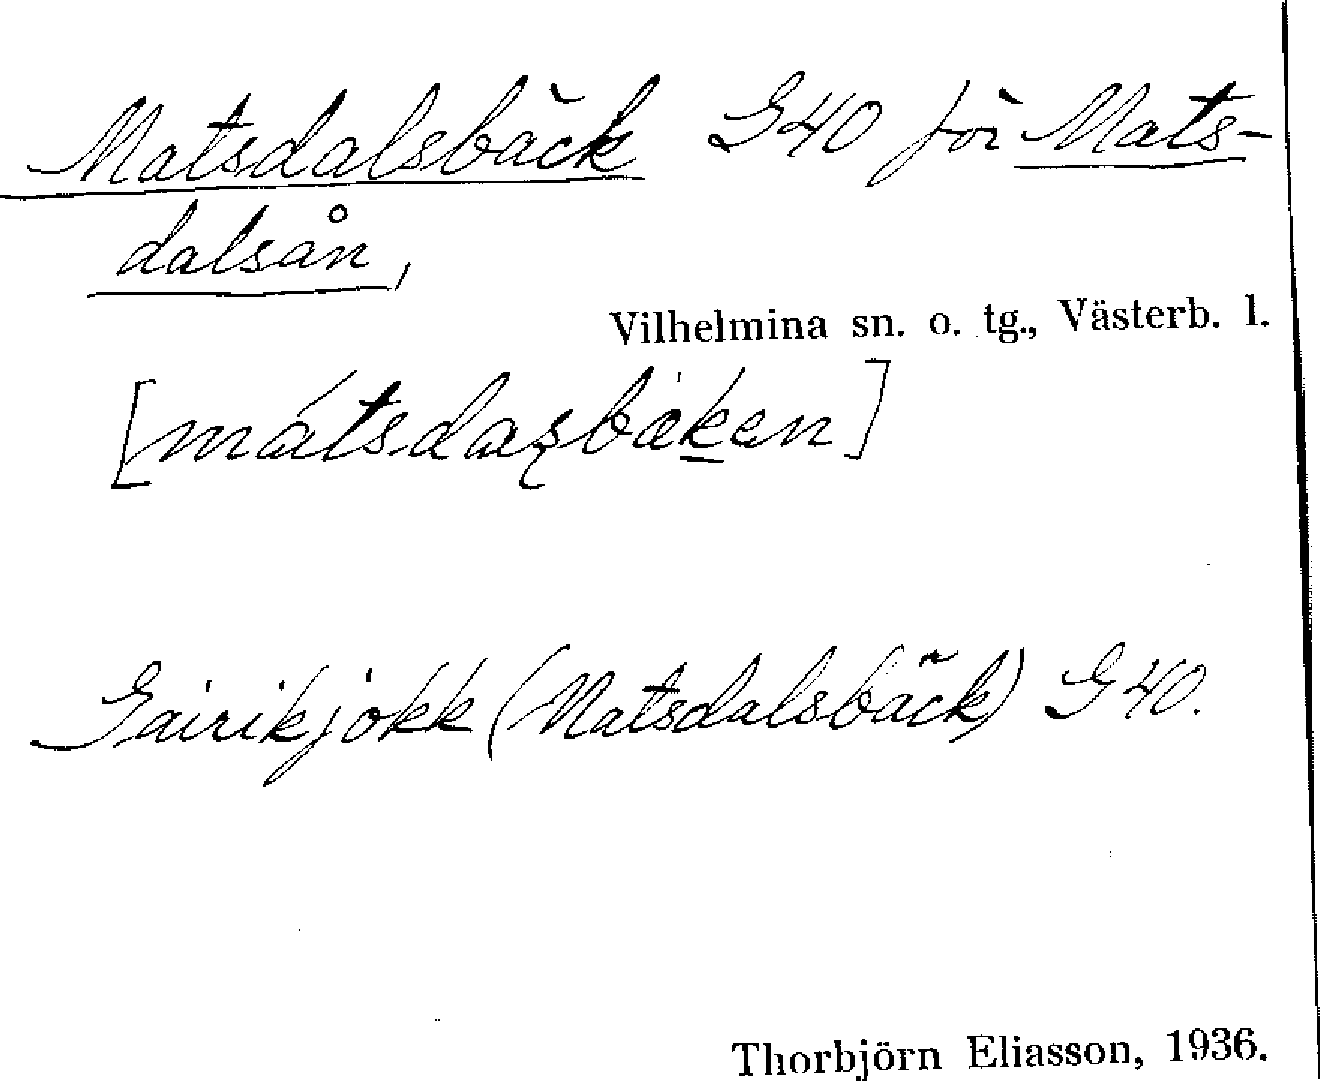 Matsdalsbäck G40 för Mats-
dalsån,
Vilhelmina sn. o. tg., Västerb. l.
[mátsdaʂbæken]
Gairikjokk (Matsdalsbäck) G40.
Thorbjörn Eliasson, 1936.